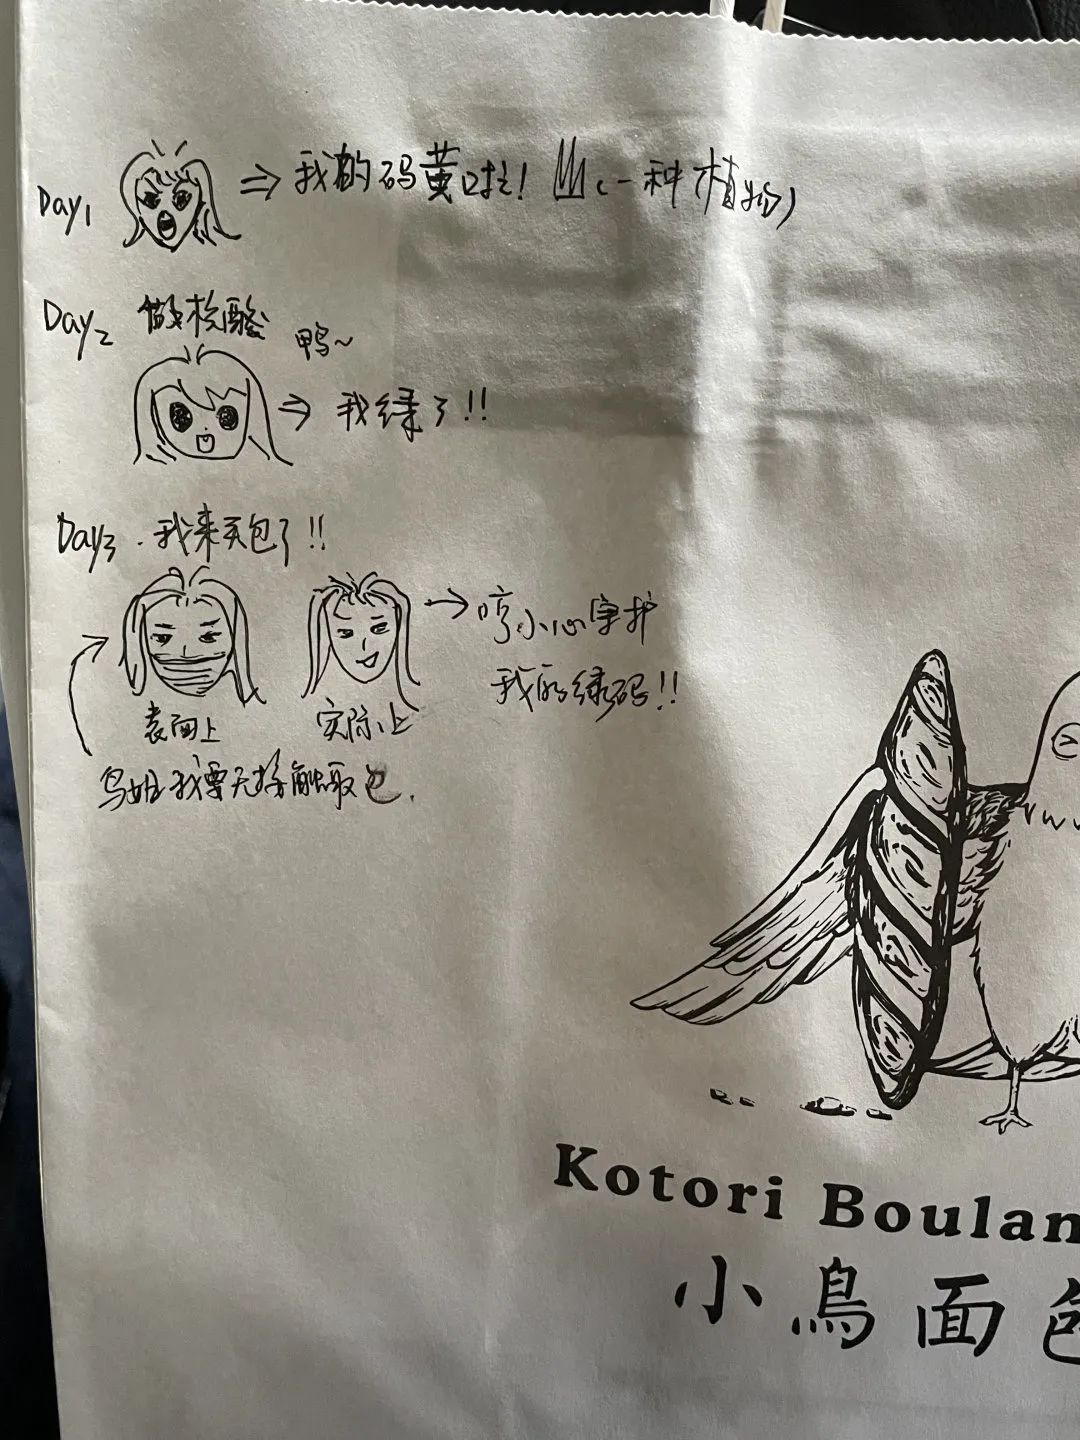 Day1 我的码黄啦！（一种植物）
Day2 做核酸
鸭~
我绿了!!
Day3. 我来买包了!!
哼小心守护
我的绿码!!
表面上 实际上
鸟姐我要无接触取包.
Kotori Boulan
小鳥面包